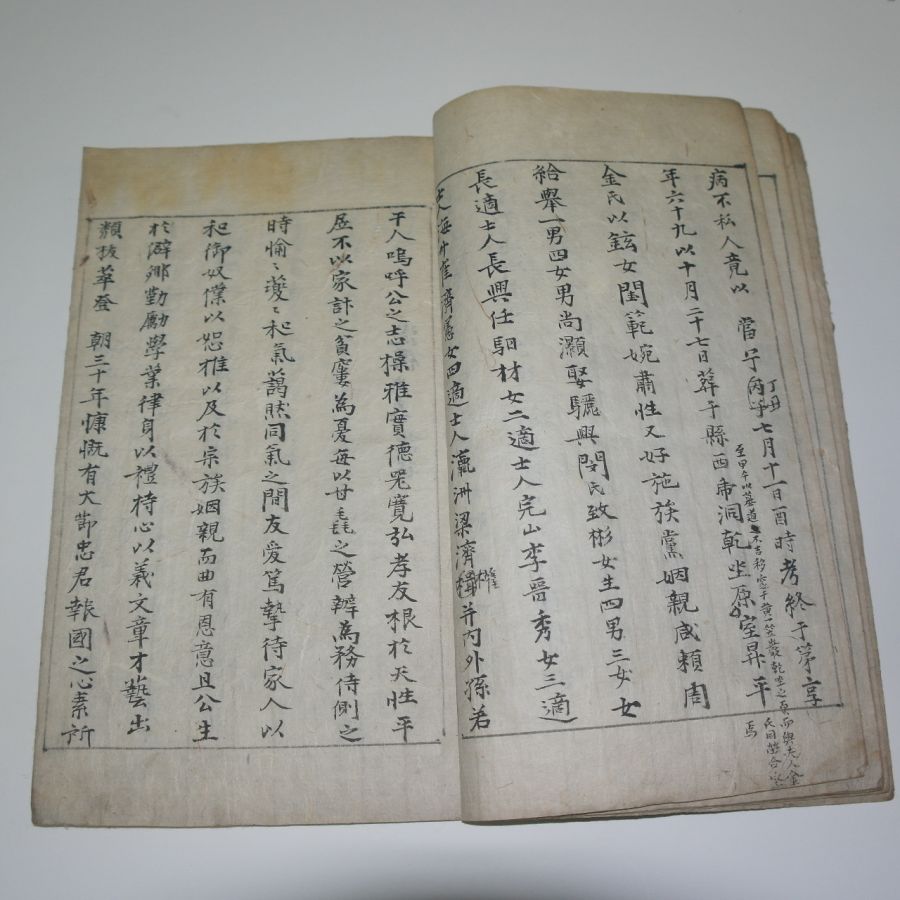 病不私人竟以 當宁丙子七月十一日酉時考終于第享
丁丑
年六十九以十月二十七日葬于縣西帝洞乾坐原室昇平
至甲午以墓道不吉移窆于黃
乾坐之
而與夫人金
氏同塋合窆
焉
金氏以鉉女閨範婉肅性又好施族黨姻親咸賴周
給舉一男四女男尚灝娶驪興閔氏致彬女生四男三女女
長適士人長興任駉材女二適士人完山李晉秀女三適
女四適士人瀛洲梁濟 并內外孫若
干人嗚呼公之志操雅實德器寬弘孝友根於天性平
居不以家計之貧窶為憂每以甘毳之營辦為務侍側之
時愉〻 〻和氣藹然同氣之間友愛篤摯待家人以
和御奴僕以恕推以及於宗族姻親而曲有恩意且公生
於僻鄉勤勵學業律身以禮持心以義文章才藝出
類拔萃登 朝三十年慷慨有大節忠君報國之心素所